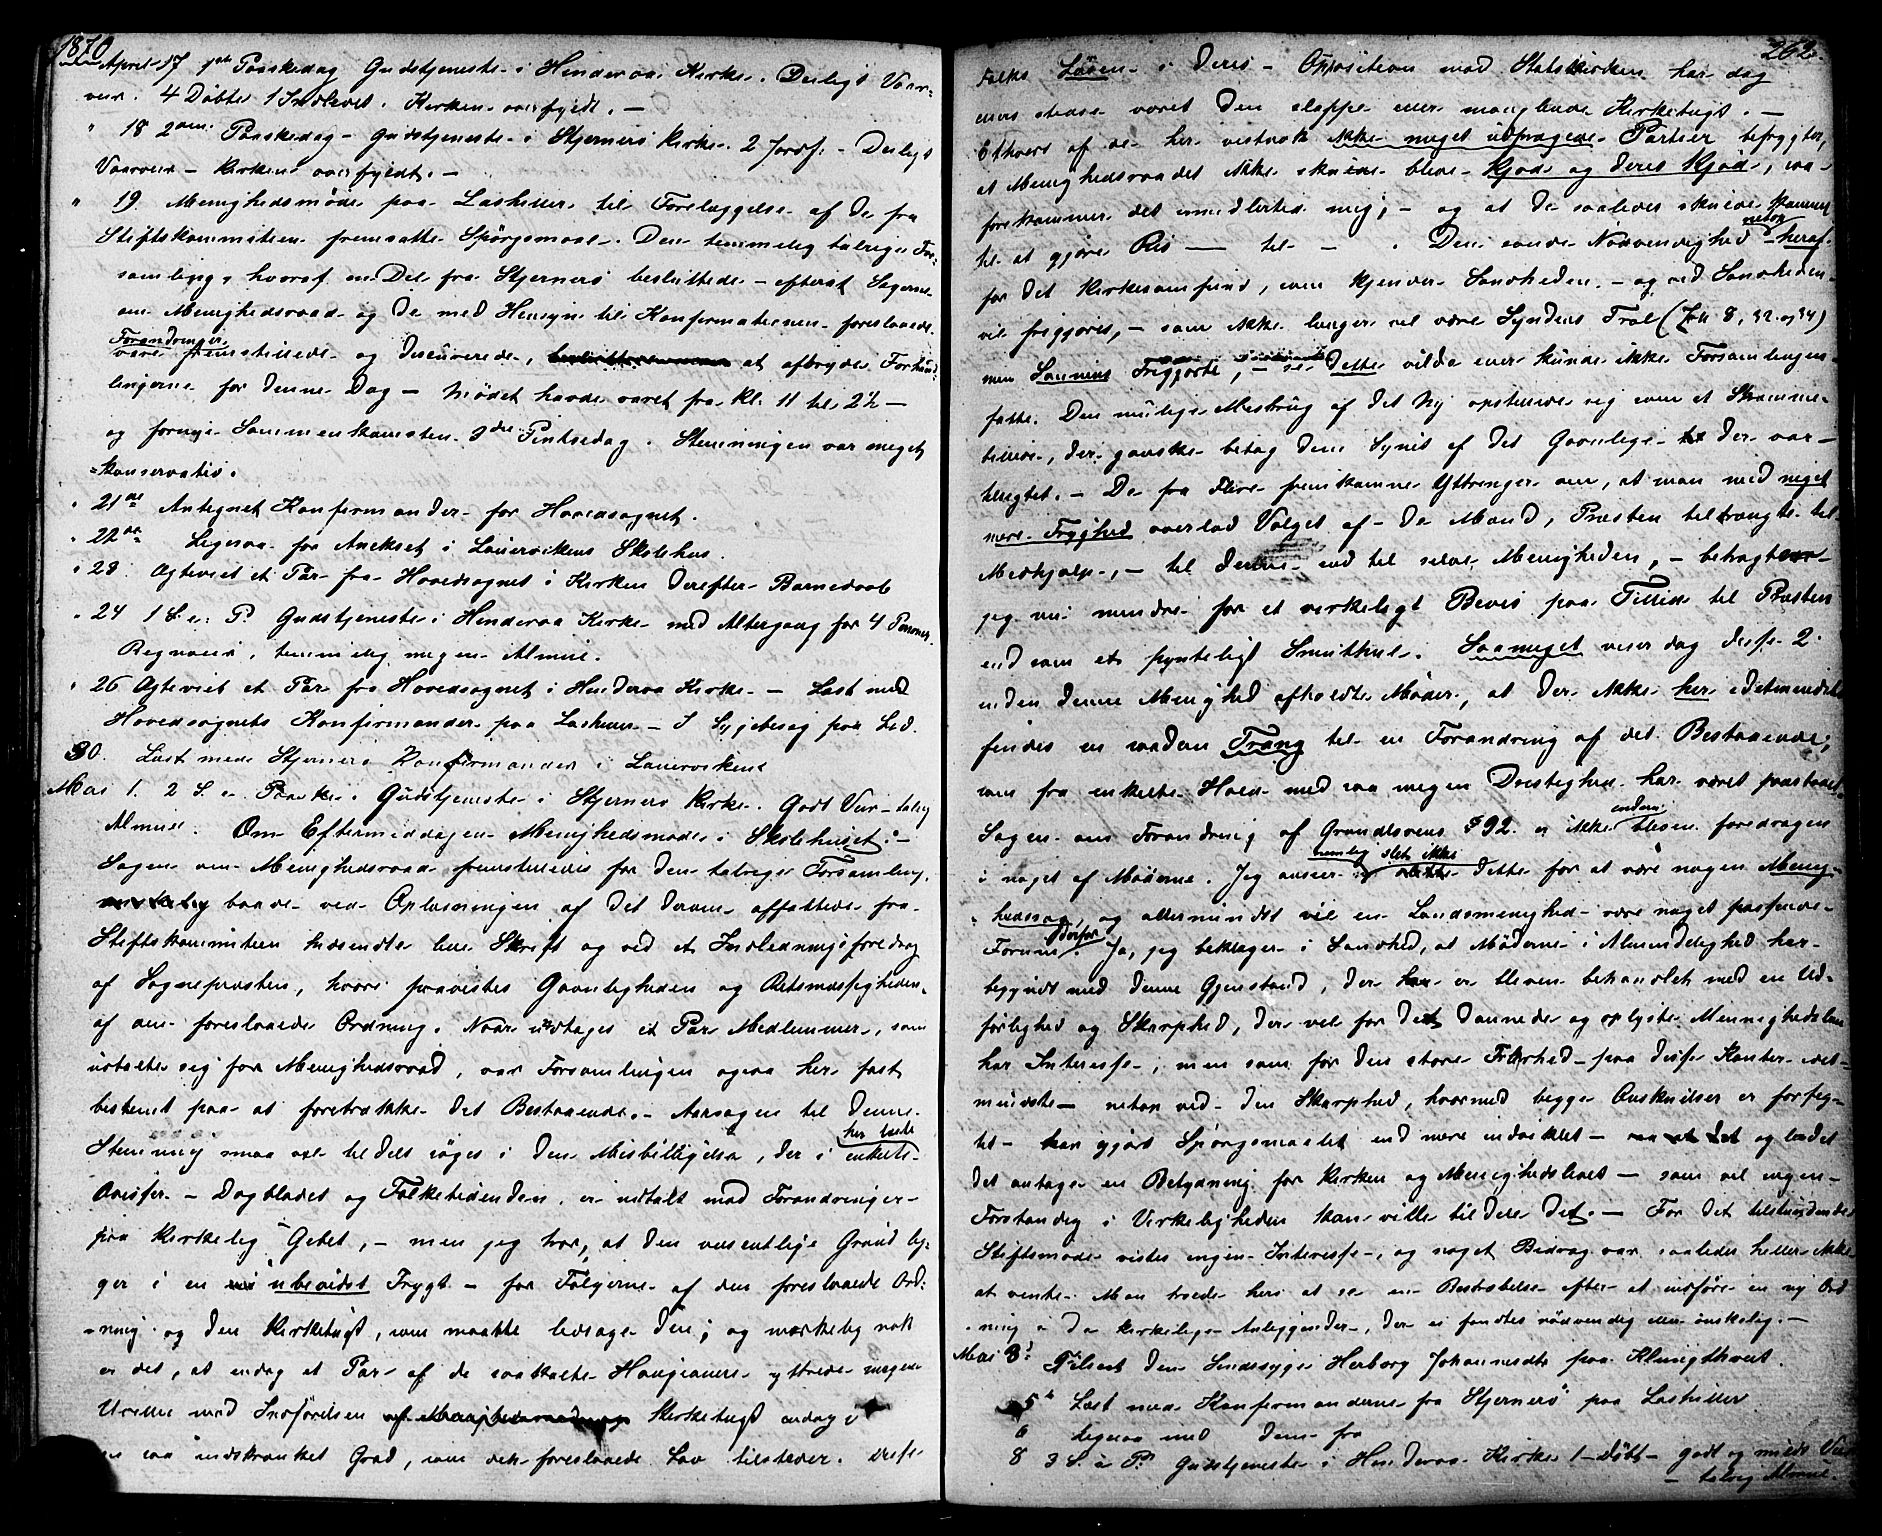 1870
April 17 1ste Paaskedag Gudstjeneste i Hinderaa Kirke. Deiligt Vaar-
veir. 4 Døbte 1 Indlevet. Kirken overfyldt. —
" 18 2den Paaskedag - Gudstjeneste i Stjernerø Kirke. 2 Jordf. - Deiligt
Vaarveir - Kirken overfyldt. —
" 19. Menighedsmøde paa Laskeller til Forelæggelse af de fra
Stiftskommiteen fremsatte Spørgsmaal. Den temmelig talrige For-
samling, hvoraf en Del fra Stjernerø besluttede - efterat Sagerne
om Menighedsraad og de med Hensyn til Konfirmationen foreslaaede
Forandringer
vare fremstillede og discuterede, at afbryde Forhand-
lingerne for denne Dag — Mødet havde varet fra Kl. 11 til 2½ —
og fornye Sammenkomsten 3die Pintsedag. Stemningen var meget
konservativ.
" 21de Antegnet Konfirmander for Hovedsognet.
" 22de Ligesaa for Annekset i Lauervikens Skolehus.
" 23 Ægteviet et Par fra Hovedsognet i Kirken derefter Barnedaab
" 24 1 S. e. P. Gudstjeneste i Hinderaa Kirke med Altergang for 4 Personer
Regnveir, temmelig megen Almue.
" 26 Ægteviet et Par fra Hovedsognet i Hinderaa Kirke — Læst med
Hovedsognets Konfirmander paa Laskeller — I Sygebesøg paa
30. Læst med Stjernerø Konfirmander i Lauerviken
Mai 1. 2 S. e. Paaske. Gudstjeneste i Stjernerø Kirke. Godt Veir - talrig
Almue. Om Eftermiddagen Menighedsmøde i Skolehuset. —
Sagen om Menighedsraad fremstilledes for den talrige Forsamling,
baade ved Oplæsningen af det derom affattede fra
Stiftskommiteen hidsendte lille Skrift og ved et Indledningsforedrag
af Sognepræsten, hvori paavistes Gavnligheden og Retsmæssigheden
af den foreslaaede Ordning. Naar undtages et Par Medlemmer, som
udtalte sig for Menighedsraad, var Forsamlingen ogsaa her fast
bestemt paa at foretrække det Bestaaende. - Aarsagen til denne
her læste
Stemning maa vel tildels søges i den Misbilligelse, der i enkelte
Aviser - Dagbladet og Folketidenden er udtalt mod Forandringer
paa kirkelig Gebet, — men jeg tror, at den væsentlige Grund lig-
ger i en ubevidst Frygt — for Følgerne af den foreslaaede Ord-
ning og den Kirketugt, som maatte ledsage den; og mærkelig nok
er det, at endog et Par af de saakaldte Haugianere yttrede megen
Uvillie mod Indførelsen Kirketugt endog i
en saa indskrænket Grad, som den foreslaaede Lov tilsteder. Disse
262.
Folks Løsen i deres Opposition mod Statskirken har dog
ellers stedse været den slappe eller manglende Kirketugt. —
Ethvert af de her vistnok ikke meget udprægede Partier befrygter,
at Menighedsraadet ikke skulde blive Kjød og deres Kjød, saa
forekommer det imidlertid mig; — og at de saaledes skulde komme
til at gjøre Ris — til — . Den sande Nødvendighed heraf
for det Kirkesamfund, som kjender Sandheden - og ved Sandheden
vil frigjøres, — som ikke længer vil være Syndens Træl (Joh. 8, 32 og 34)
men Sønnens Frigjorte, — dette vilde eller kunde ikke Forsamlingen
fatte. Den mulige Misbrug af det Ny opstillede sig som et Skræmme-
billede, der ganske betog dem Synet af det Gavnlige der var
tilsigtet. — De fra Flere fremkomne Yttringer om, at man med meget
mere Tryghed overlod Valget af de Mænd, Præsten tiltrængte til
Medhjælp, — til denne end til selve Menigheden, — betragter
jeg nu mindre for et virkeligt Bevis paa Tillid til Præsten
end som et pynteligt Smuthul. Saameget viser dog disse 2
inden denne Menighed afholdte Møder, at der ikke her idetmindste
findes en saadan Trang til en Forandring af det Bestaaende;
som fra enkelte Hold med saa megen Dristighed har været paastaaet.
Sagen om Forandring af Grundlovens § 92. er ikke bleven foredragen
nemlig slet ikke
i noget af Møderne. Jeg anseer dette for at være nogen Menig-
hedssag, og allermindst vil en Landsmenighed være noget passende
Forum derfor. Ja, jeg beklager i Sandhed, at Møderne i Almindelighed har
begyndt med denne Gjenstand, der er bleven behandlet med en Ud-
førlighed og Skarphed, der vel for det dannede og oplyste Menighedslem
har Interesse, men som for den store Flerhed — paa disse Kanter idet-
mindste — netop ved den Skarphed, hvormed begge Anskuelser er forfeg-
tet — har gjort Spørgsmaalet end mere indviklet — og ladet
det antage en Betydning for Kirken og Menighedslivet — som vel ingen
Forstandig i Virkeligheden kan ville tildele det. — For det tilstundende
Stiftsmøde vistes ingen Interesse, og noget Bidrag var saaledes heller ikke
at vente. Man troede heri at se en Bestræbelse efter at indføre en ny Ord-
ning i de kirkelige Anliggender, der ei fandtes nødvendig eller ønskelig. —
Mai 3. Tilseet den Sindssyge Herborg Johannesdtr paa Klungtveit.
5 Læst med Konfirmanderne fra Stjernerø paa Laskeller
6 Ligesaa med dem fra
8 3 S. e. P. Gudstjeneste i Hinderaa Kirke 1 Døbt - godt og mildt Veir
— talrig Almue.